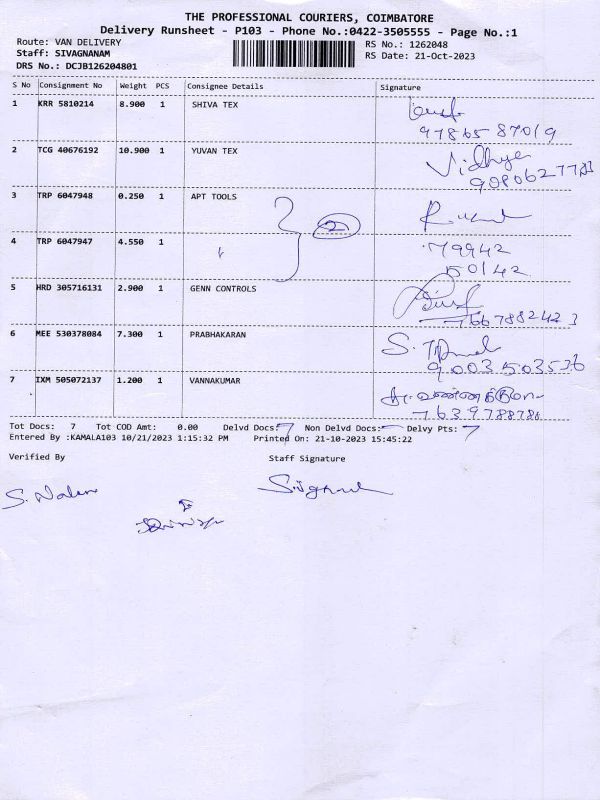 THE PROFESSIONAL COURIERS, COIMBATORE
Delivery Runsheet - P103 - Phone No.:0422-3505555 - Page No.:1
Route: VAN DELIVERY RS No.: 1262048
Staff: SIVAGNANAM RS Date: 21-Oct-2023
DRS No.: DCJB126204801
S No Consignment No Weight PCS Consignee Details Signature
1 KRR 5810214 8.900 1 SHIVA TEX
97865 87019
2 TCG 40676192 10.900 1 YUVAN TEX Vidhya
3 TRP 6047948 0.250 1 APT TOOLS
2
4 TRP 6047947 4.550 1 79942
50142
5 HRD 305716131 2.900 1 GENN CONTROLS
766 788242 3
6 MEE 530378084 7.300 1 PRABHAKARAN
9003503536
7 IXM 505072137 1.200 1 VANNAKUMAR
7639788786
Tot Docs: 7 Tot COD Amt: 0.00 Delvd Docs: 7 Non Delvd Docs: - Delvy Pts: 7
Entered By :KAMALA103 10/21/2023 1:15:32 PM Printed On: 21-10-2023 15:45:22
Verified By Staff Signature